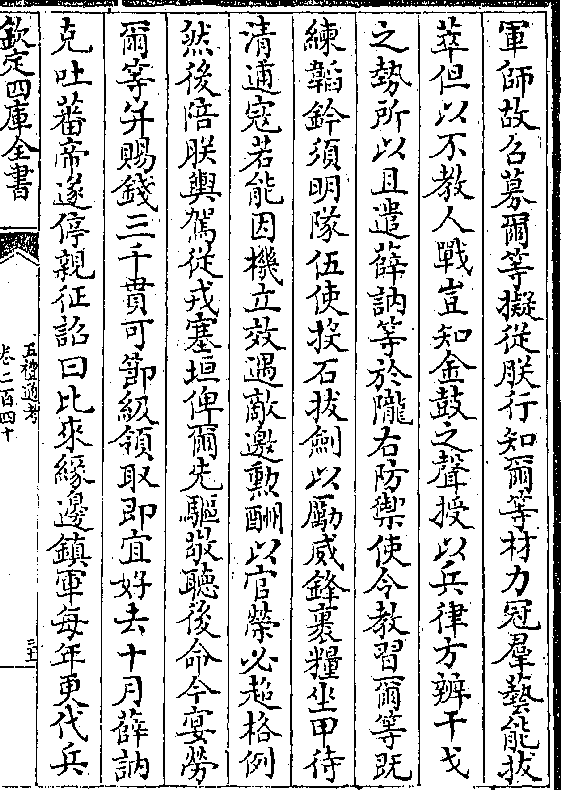 軍師故召募爾等擬從朕行知爾等材力冠羣藝能拔
萃但以不教人戰豈知金鼓之聲授以兵律方辨干戈
之勢所以且遣薛訥等於隴右防禦使令教習爾等既
練韜鈐須明隊伍使投石拔劍以勵威鋒裹糧坐甲待
清逋寇若能因機立效遇敵邀勲酬以官榮必超格例
然後陪朕輿駕從戎塞垣俾爾先驅敬聽後命今宴勞
爾等并賜錢三千貫可節級領取即宜好去十月薛訥
克吐蕃帝遂停親征詔曰比來緣邊鎮軍每年更代兵
欽定四庫全書
五禮通考
卷二百四十
三十五